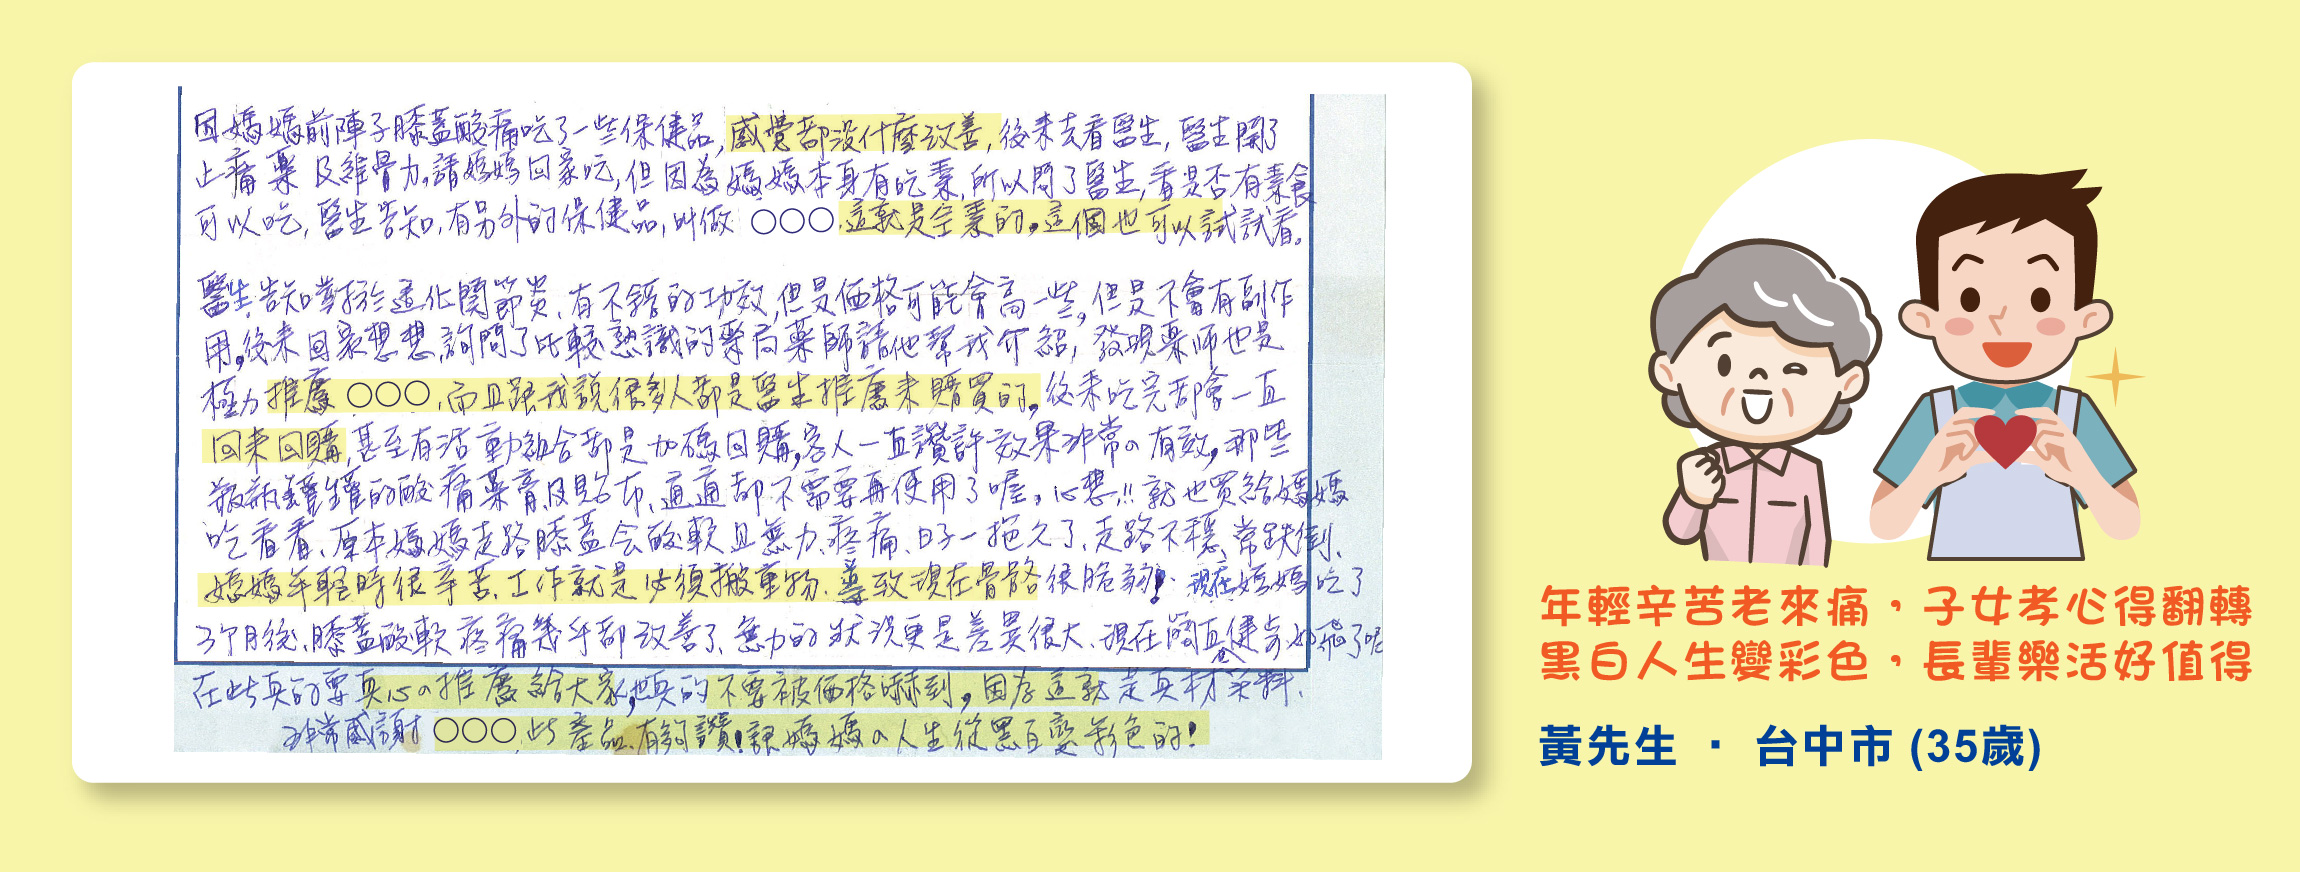 因媽媽前陣子膝蓋酸痛吃了一些保健品,感覺都沒什麼改善,後來去看醫生,醫生開了
止痛藥及維骨力,請媽媽回家吃,但因為媽媽本身有吃素,所以問了醫生,看是否有素食
可以吃,醫生告知,有另外的保健品,叫做○○○.這就是全素的,這個也可以試試看。
醫生告知對於退化關節炎、有不錯的功效,但是価格可能會高一些,但是不會有副作
用,後來回家想想,詢問了比較熟識的藥局藥師請他幫我介紹,發現藥師也是
極力推薦○○○,而且跟我說很多人都是醫生推薦來購買的,後來吃完都會一直
回來回購,甚至有活動組合都是加碼回購,客人一直讚許效果非常の有效,那些
瓶瓶罐罐的酸痛藥膏及貼布、通通都不需要再使用了喔。心想!!就也買給媽媽
吃看看、原本媽媽走路膝蓋会酸軟且無力、疼痛、日子一拖久了、走路不穩、常跌倒、
媽媽年輕時很辛苦、工作就是必須搬重物、導致現在骨骼很脆弱!現在媽媽吃了
3个月後、膝蓋酸軟疼痛幾乎都改善了、無力的狀況更是差異很大、現在簡直健步如飛了呢
在此真的要真心の推薦給大家,也真的不要被価格嚇到,因為這就是真材實料、
非常感謝○○○,此產品、有夠讚!讓媽媽の人生從黑白變彩色的!
年輕辛苦老來痛,子女孝心得翻轉
黑白人生變彩色,長輩樂活好值得
黃先生 · 台中市 (35歲)